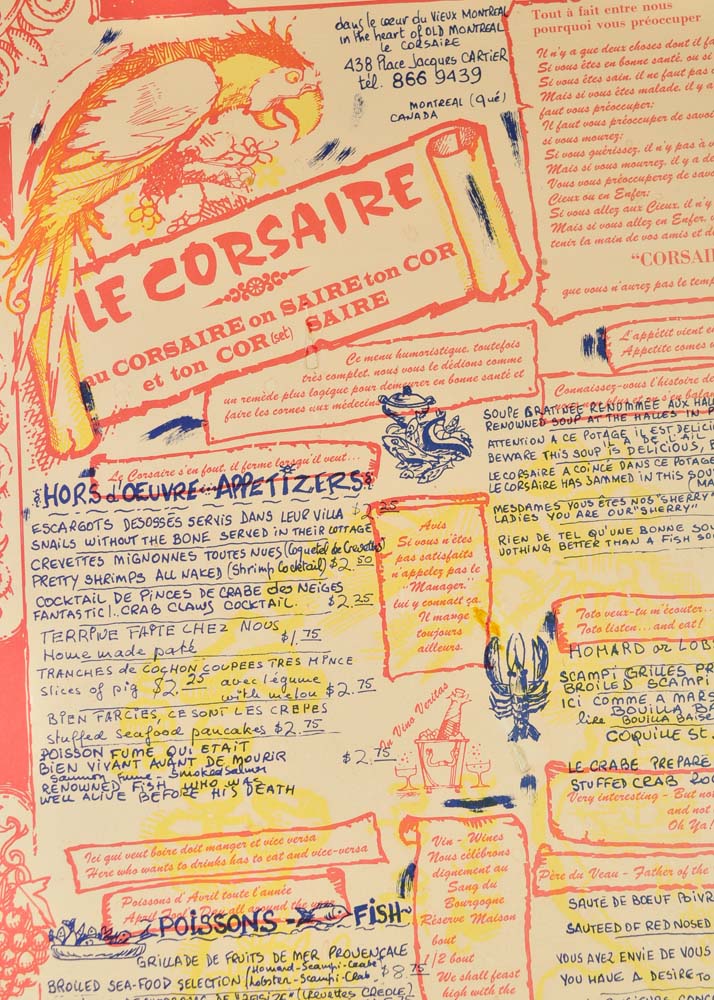 dans le cœur du VIEUX MONTREAL
in the heart of OLD MONTREAL
le CORSAIRE
438 Place Jacques CARTIER
tél. 866 9439
MONTREAL (Qué)
CANADA
Tout à fait entre nous
pourquoi vous préoccuper
Il n'y a que deux choses dont il fa
Si vous êtes en bonne santé, ou si
Si vous êtes sain, il ne faut pas
Mais si vous êtes malade, il y a
faut vous préoccuper:
Il faut vous préoccuper de savoi
si vous mourez:
Si vous guérissez, il n'y pas à v
Mais si vous mourrez, il y a de
Vous vous préoccuperez de sav
Cieux ou en Enfer:
Si vous allez aux Cieux, il n'y
Mais si vous allez en Enfer, v
tenir la main de vos amis et d
"CORSAI
que vous n'aurez pas le temp
LE CORSAIRE
ou CORSAIRE on SAIRE ton COR
et ton COR (set) SAIRE
Ce menu humoristique, toutefois
très complet, nous vous le dédions comme
un remède plus logique pour demeurer en bonne santé et
faire les cornes aux médecins
L'appétit vient e
Appetite comes w
Connaissez-vous l'histoire de
SOUPE GRATINÉE RENOMMEE AUX HAL
RENOWNED SOUP AT THE HALLES IN P
ATTENTION A CE POTAGE IL EST DELICI
DE L'AIL
BEWARE THIS SOUP IS DELICIOUS, B
LE CORSAIRE A COINCE DANS CE POTAGE
LE CORSAIRE HAS JAMMED IN THIS SOU
(MA
MESDAMES VOUS ETES NOS "SHERRY"
LADIES YOU ARE OUR "SHERRY"
RIEN DE TEL QU'UNE BONNE SOU
NOTHING BETTER THAN A FISH SOU
Le Corsaire s'en fout, il ferme lorsqu'il veut...
HORS d'OEUVRE - APPETIZERS
ESCARGOTS DESOSSÉS SERVIS DANS LEUR VILLA $2.25
SNAILS WITHOUT THE BONE SERVED IN THEIR COTTAGE
CREVETTES MIGNONNES TOUTES NUES (Coquetel de Crevettes)
PRETTY SHRIMPS ALL NAKED (Shrimp Cocktail) $2.50
COCKTAIL DE PINCES DE CRABE des NEIGES
FANTASTIC!.. CRAB CLAWS COCKTAIL $2.25
TERRINE FAITE CHEZ NOUS
Home made paté $1.75
TRANCHES de COCHON COUPEES TRES MINCE
slices of pig $2.25 avec légume
with melon $2.75
BIEN FARCIES, CE SONT LES CREPES
stuffed seafood pancakes $2.75
POISSON FUMÉ QUI ETAIT
BIEN VIVANT AVANT DE MOURIR $2.75
Saumon Fumé - Smoked salmon
RENOWNED FISH WHO WAS
WELL ALIVE BEFORE HIS DEATH
Avis
Si vous n'êtes
pas satisfaits
n'appelez pas le
"Manager."
lui y connait ça.
Il mange
toujours
ailleurs.
In Vino Veritas
Toto veux-tu m'écouter...
Toto listen...and eat!
HOMARD or LOBS
SCAMPI GRILLES PR
BROILED SCAMPI
ICI COMME A MARS
BOUILLA BA
like BOUILLA BAISE
COQUILLE ST.
LE CRABE PREPARE
STUFFED CRAB
Very interesting - But no
and not
Oh Ya!
Ici qui veut boire doit manger et vice versa
Here who wants to drinks has to eat and vice-versa
Poissons d'Avril toute l'année
April Fool Day all around the year
POISSONS - FISH
GRILLADE DE FRUITS DE MER PROVENÇALE
(Homard-Scampi-Crabe)
BROILED SEA-FOOD SELECTION (Lobster-Scampi-Crab) $8.75
(Crevettes CREOLE)
Vin - Wines
Nous célébrons
dignement au
Sang du
Bourgogne
Réserve Maison
bout
1/2 bout
We shall feast
high with the
Père du Veau - Father of the
SAUTÉ DE BOEUF POIVR
SAUTEED OF RED NOSED
VOUS AVEZ ENVIE DE VOUS
YOU HAVE A DESIRE TO